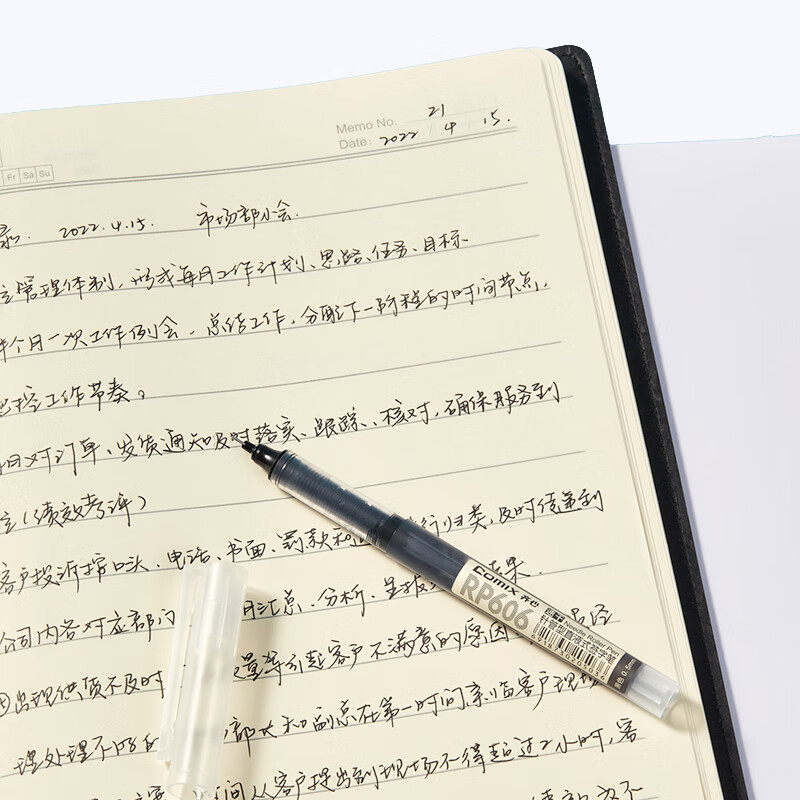 Memo No. 21
Date: 2022 / 4 / 15.
Fr Sa Su
录. 2022.4.15. 市场部小会.
管理体制, 形成每月工作计划、思路、任务、目标
个月一次工作例会, 总结工作, 分配下一阶段的时间节点,
把控工作节奏。
对订单、发货通知及时落实、跟踪、核对, 确保服务到
(绩效考评)
客户投诉按口头、电话、书面、罚款和 行归类, 及时传递到
公司内各对应部门 汇总、分析、呈报 结果.
出现供货不及时 质量等引起客户不满意的原因
部大和副总在第一时间亲临客户现场
理处理不好的
时间从客户提出到现场不得超过2小时, 客
Comix 齐心
RP606
Needle Roller Pen
针管型直液式签字笔
黑色 0.5mm